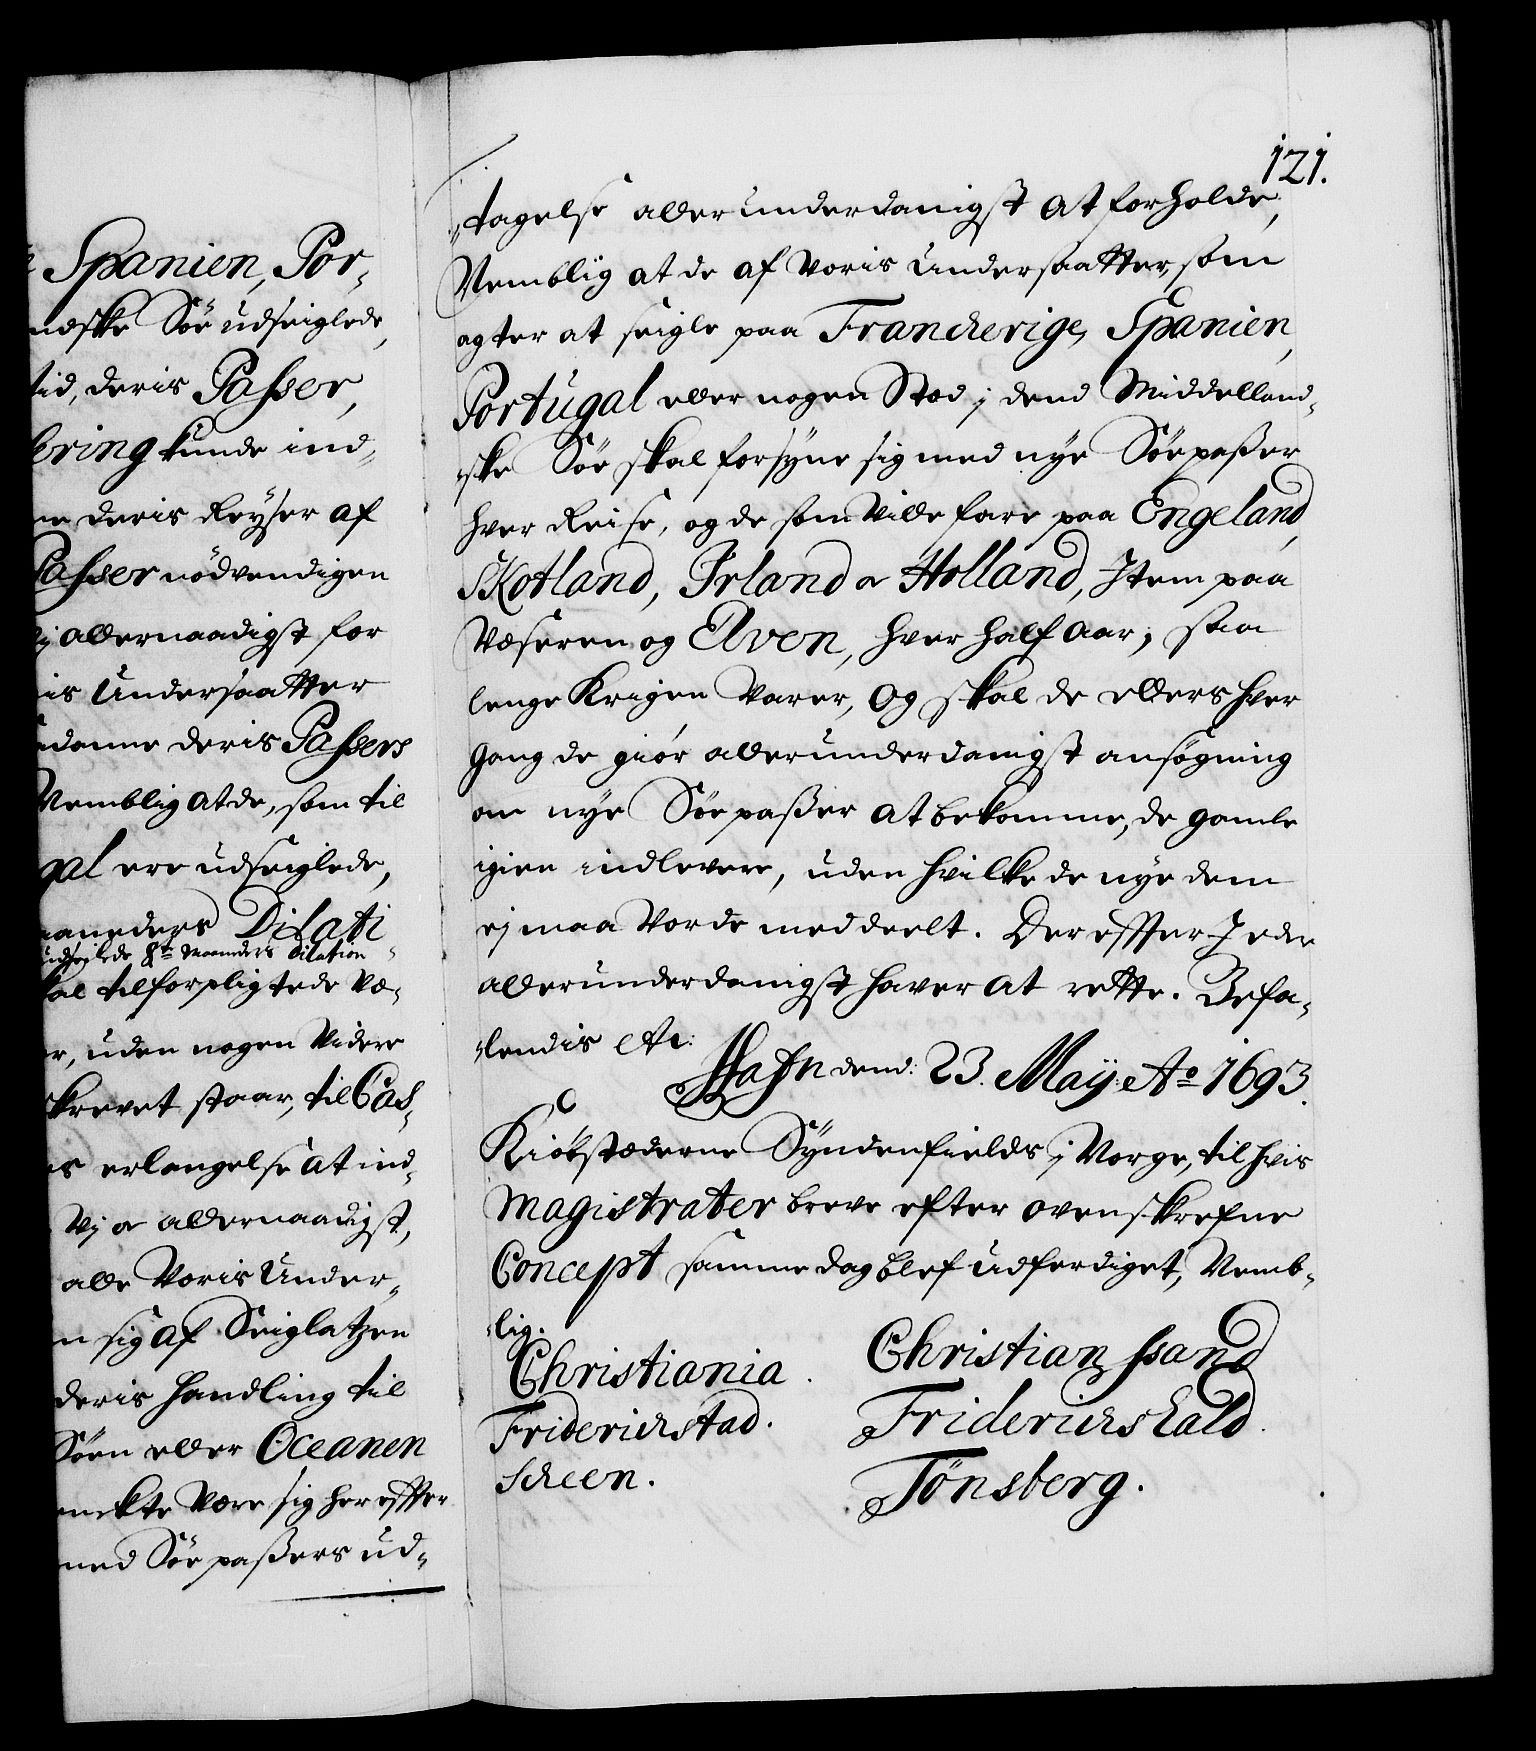 Spanien, Por-
ndske Söe udseiglede,
tid, deris Passer,
bring kunde ind-
deris Reyser af
Passer nödvendigen
allernaadigst for
is Undersaatter
danne deris Passers
Nemblig at de, som til
gal ere udseiglede,
maaneders Dilati-
udseilede 8te Maaneders Dilation
kal tilforpligtede væ-
er, uden nogen Videre
skrevet staar, til Cas-
es erlangelse at ind-
Vj er allernaadigst,
alle Voris Under-
n sig af Seiglatzen
deris handling til
Söen eller Oceanen
enckte Være sig her effter
med Söe paßers ud-
121.
-tagelse allerunderdanigst at forholde,
Nemblig at de af Voris Undersaatter, som
agter at seigle paa Franckerige, Spanien,
Portugal eller nogen Stæd j dend Middelland-
-ske Söe skal forsyne sig med nye Söepaßer
hver Reise, og de som Ville fare paa Engeland,
Skotland, Irland oc Holland, Item paa
Væseren og Elven, hver half Aar, saa
lenge Krigen Varer, Og skal de ellers hver
gang de giör allerunderdanigst ansögning
om nye Söe paßer at bekomme, de gamle
igien indlevere, uden hvilke de nye dem
ej maa Vorde meddeelt. Der effter I eder
allerunderdanigst haver at rette. Befa-
-lendis etc:
Hafn dend: 23. Maÿ: Ao 1693.
Kiöbstæderne Syndenfields j Norge, til hvis
Magistrater breve efter ovenskrefne
Concept samme dag blef udferdiget, Nemb-
-lig.
Christiania. Christianssand
Friderichstad. Friderichshald.
Scheen. Tönsberg.